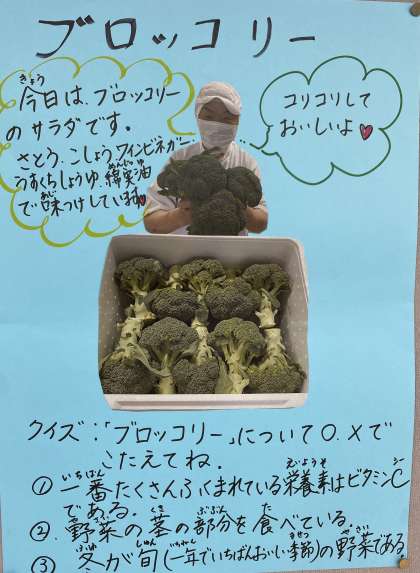 ブロッコリー
今日は、ブロッコリー
のサラダです。
さとう、こしょう、ワインビネガー、
うすくちしょうゆ、綿実油
で味つけしています
コリコリして
おいしいよ
クイズ:「ブロッコリー」について○、×で
こたえてね。
① 一番たくさんふくまれている栄養素はビタミンC
である。
②. 野菜の茎の部分を食べている。
③ 冬が旬(一年でいちばんおいしい季節)の野菜である